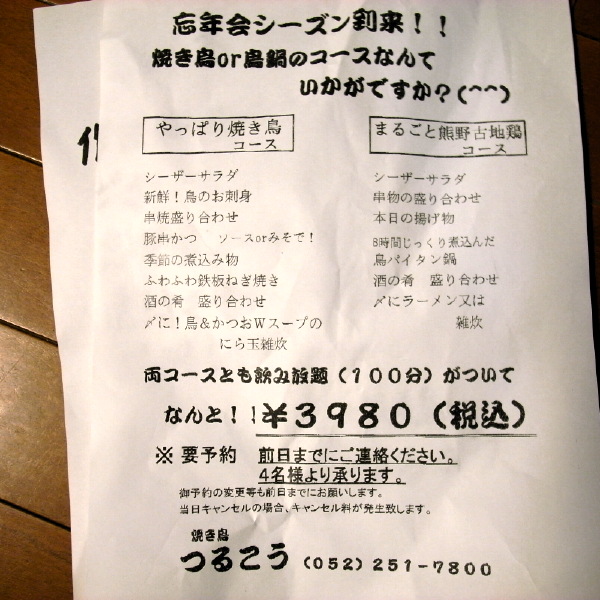 忘年会シーズン到来！！
焼き鳥or鳥鍋のコースなんて
いかがですか？(^^)
やっぱり焼き鳥
コース
シーザーサラダ
新鮮！鳥のお刺身
串焼盛り合わせ
豚串かつ ソースorみそで！
季節の煮込み物
ふわふわ鉄板ねぎ焼き
酒の肴 盛り合わせ
〆に！鳥＆かつおWスープの
にら玉雑炊
まるごと熊野古地鶏
コース
シーザーサラダ
串物の盛り合わせ
本日の揚げ物
8時間じっくり煮込んだ
鳥パイタン鍋
酒の肴 盛り合わせ
〆にラーメン又は
雑炊
両コースとも飲み放題（１００分）がついて
なんと！！￥３９８０（税込）
※ 要予約 前日までにご連絡ください。
４名様より承ります。
御予約の変更等も前日までにお願いします。
当日キャンセルの場合、キャンセル料が発生致します。
焼き鳥
つるこう（０５２）２５１－７８００